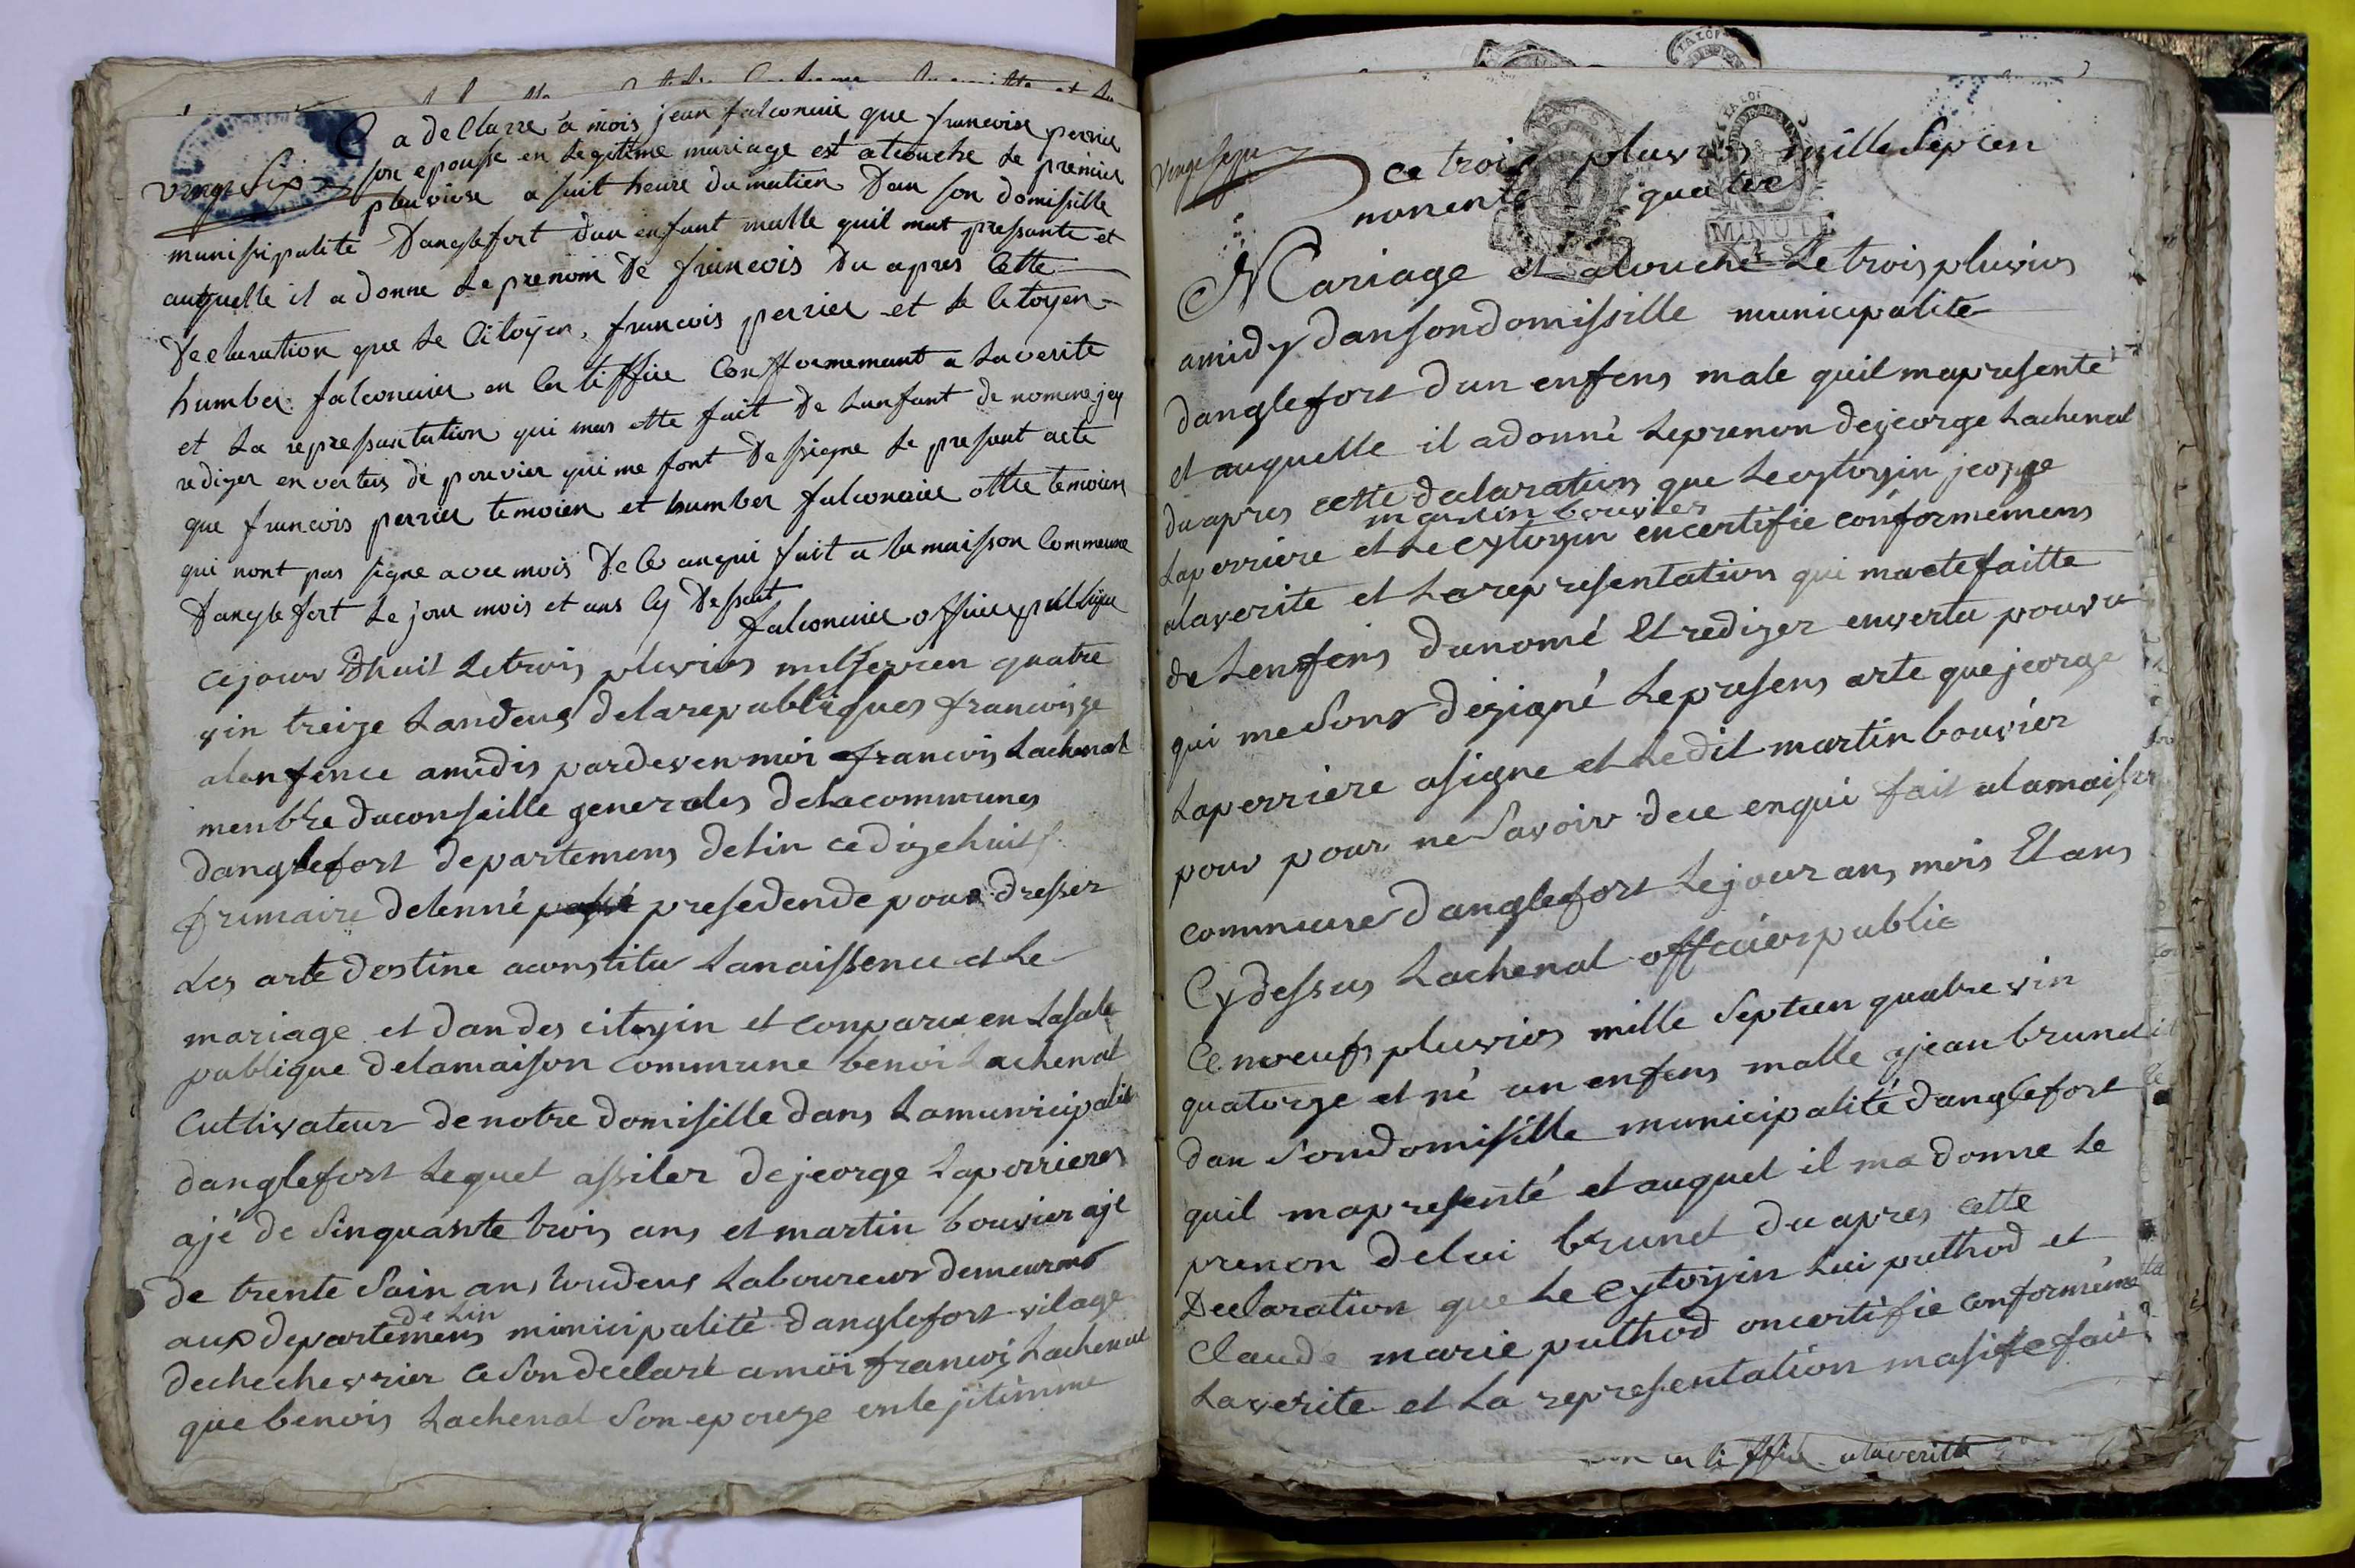 vingt Six
a declarre a mois jean falconnier que francoise perrier
son epousse en legitime mariage est acouche le premier
pluviose a huit heure du matien Dan son domissille
munissipalite Danglefort dun enfant malle quil mat pressante et
auquelle il a donne le prenom De francois Du apres Cette
Declaration que le Citoyen francois perrier et le Citoyen
humber falconnier en Certiffie Confformemant a la verite
et la repressantation qui mas ette fait De lanfant de nomme jey
rediger en vertus de pouvier qui me sont Dessigne le presant acte
que francois perrier temoien et humber falconnier ottre temoien
qui nont pas signe avec mois De Ce anqui fait a la maisson Commeune
Danglefort le jour mois et ans Cy Dessut
falconnier officier publique
cejour dhuit letrois pluvios milseptcen quatre
vin treize landeus delarepubliques francoisze
alenfence amidis pardevenmoi francois Lachenal
menbre duconseille generales delacommunes
danglefort departemens delin cedizehuit
frimaire delenné presedende pour dresser
les arte destine aconstitu lanaissence et le
mariage et dan des citoyin et conparu en lasale
publique delamaison commune benoi Lachenal
Cultivateur denotre domisille dans lamunicipalite
danglefort lequel assiler dejeorge Laperrieres
ajé de Sinquante trois ans et martin bouvier aje
de trente Sain ans toudeus laboureur demeurens
de lin
aux departemens minicipalité danglefort vilage
dechechevrier ceson declaré amoi francois Lachenal
que benois Lachenal Son epouze enlejitimme
Vingt Sept
ce trois pluvios mille Sepcen
nonente quatre
Mariage et acouche letrois pluvios
amidy dansondomissille municipalite
danglefort dun enfens male quil mapresenté
et auquelle il adonné leprenon dejeorge Lachenal
duapres cette declaration que lecytoyin jeorge
martin bouvier
Laperriere et lecytoyin encertifie conformemens
alaverite et larepresentation qui maetefaitte
de Lenfens dunomé Et rediger envertu pouvu
qui mesons dezigné lepresens arte que jeorge
Laperriere asigne et ledit martin bouvier
pour pour ne Savoir dece enqui fait alamaison
commune danglefort lejour an mois Et ans
Cydessus Lachenal officier public
Ce nœufs pluvios mille Septcen quatre vin
quatorze et né un enfens malle ajean brunet
dan Sondomisille municipalité danglefort
quil mapresenté et auquel il ma donne le
prenon de lui brunet du apres cette
Declaration que le Cytoyin Lui puthod et
Claude marie puthod oncertifie conformémen
Laverite et la representation masite fait
certiffie alaveritte